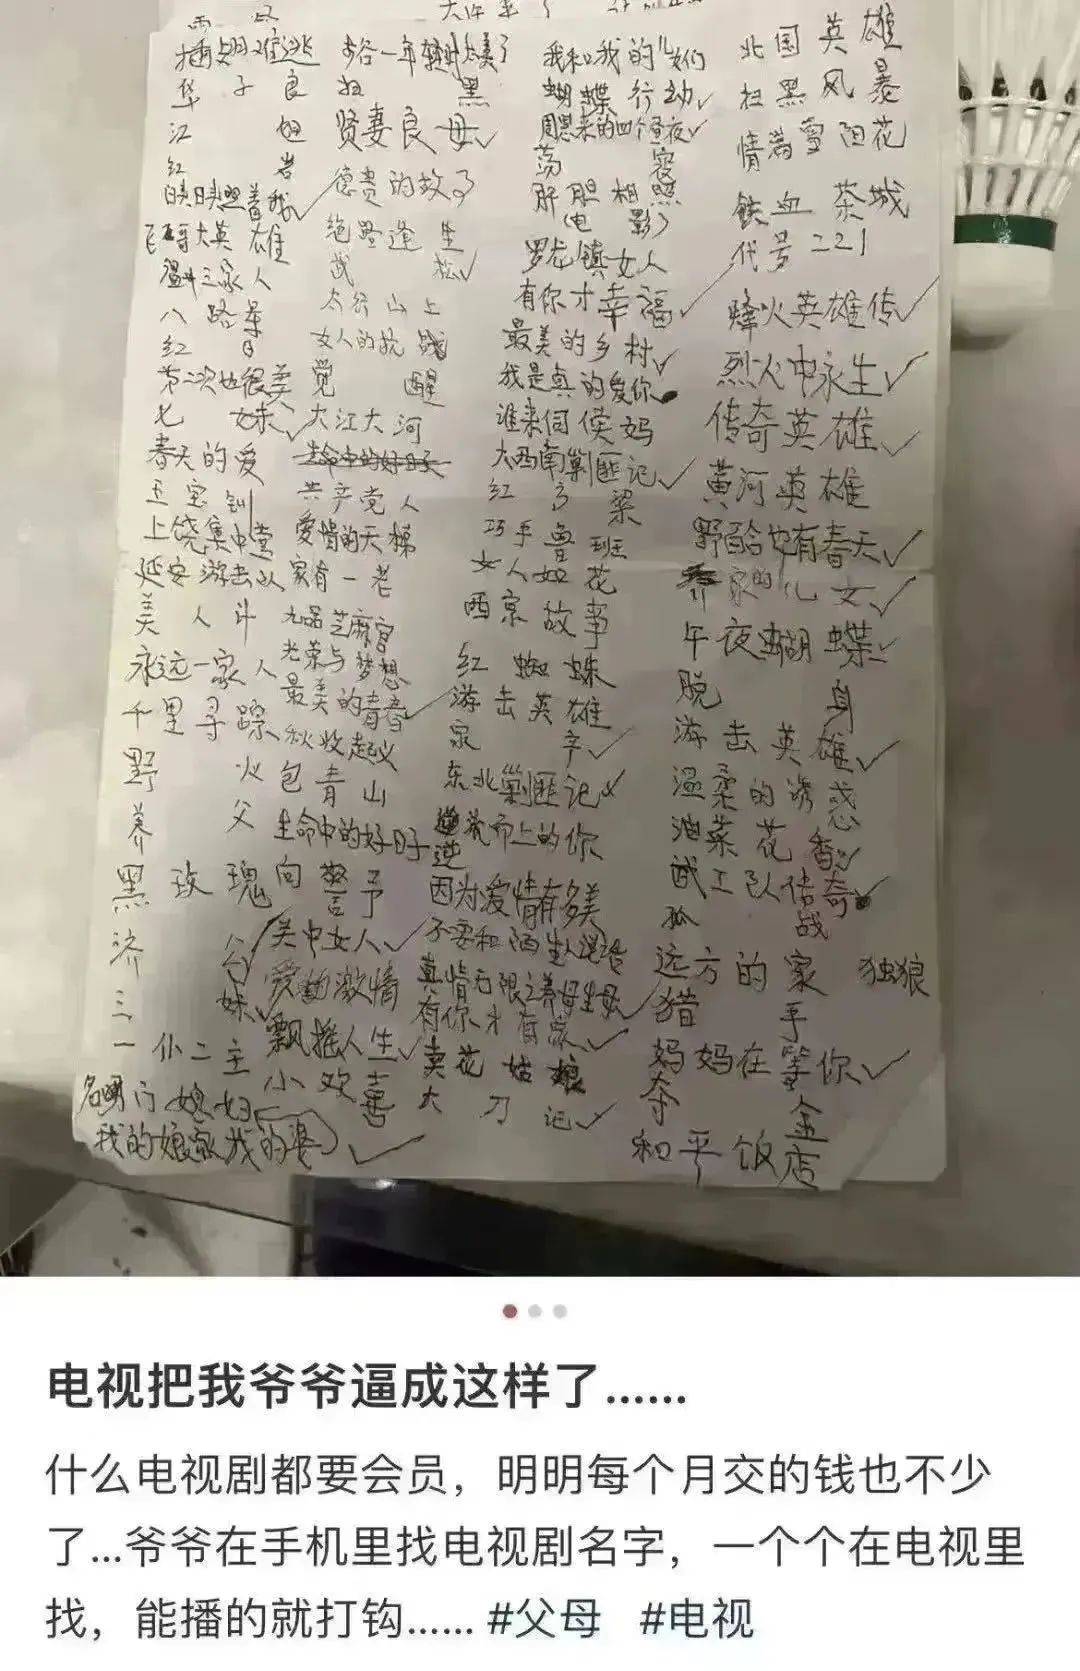 华子良
江姐
红岩
映日映照着我
飞哥大英雄
温州三家人
八路军
红日
第二次也很美
七妹
春天的爱
王宝钏
上饶集中营
延安游击队
美人计
永远一家人
千里寻踪
野火
养父
黑玫瑰
济公
三妹
一仆二主
名门媳妇
我的娘家我的婆
扫黑
贤妻良母
德贵的故事
绝路逢生
武松
太行山上
女人的抗战
觉醒
大江大河
生命中的好日子
共产党人
爱情的天梯
家有一老
九品芝麻官
光荣与梦想
最美的青春
秋收起义
包青山
生命中的好日子
向警予
关中女人
爱的激情
飘摇人生
小欢喜
我和我的儿女们
蝴蝶行动
周恩来的四个昼夜
荡寇
肝胆相照
电影了
罗龙镇女人
有你才幸福
最美的乡村
我是真的爱你
谁来伺候妈
大西南剿匪记
红高粱
巧手鲁班
女人如花
西京故事
红蜘蛛
游击英雄
东北剿匪记
逆流而上的你
因为爱情有多美
不要和陌生人说话
真情无限之养母生母
有你才有家
卖花姑娘
大刀记
北国英雄
扫黑风暴
情满雪阳花
铁血茶城
代号221
烽火英雄传
烈火中永生
传奇英雄
黄河英雄
野百合也有春天
乔家的儿女
午夜蝴蝶
脱身
游击英雄
温柔的诱惑
油菜花香
武工队传奇
孤战
远方的家 独狼
猎手
妈妈在等你
夺金
和平饭店
电视把我爷爷逼成这样了......
什么电视剧都要会员，明明每个月交的钱也不少
了...爷爷在手机里找电视剧名字，一个个在电视里
找，能播的就打钩...... #父母 #电视